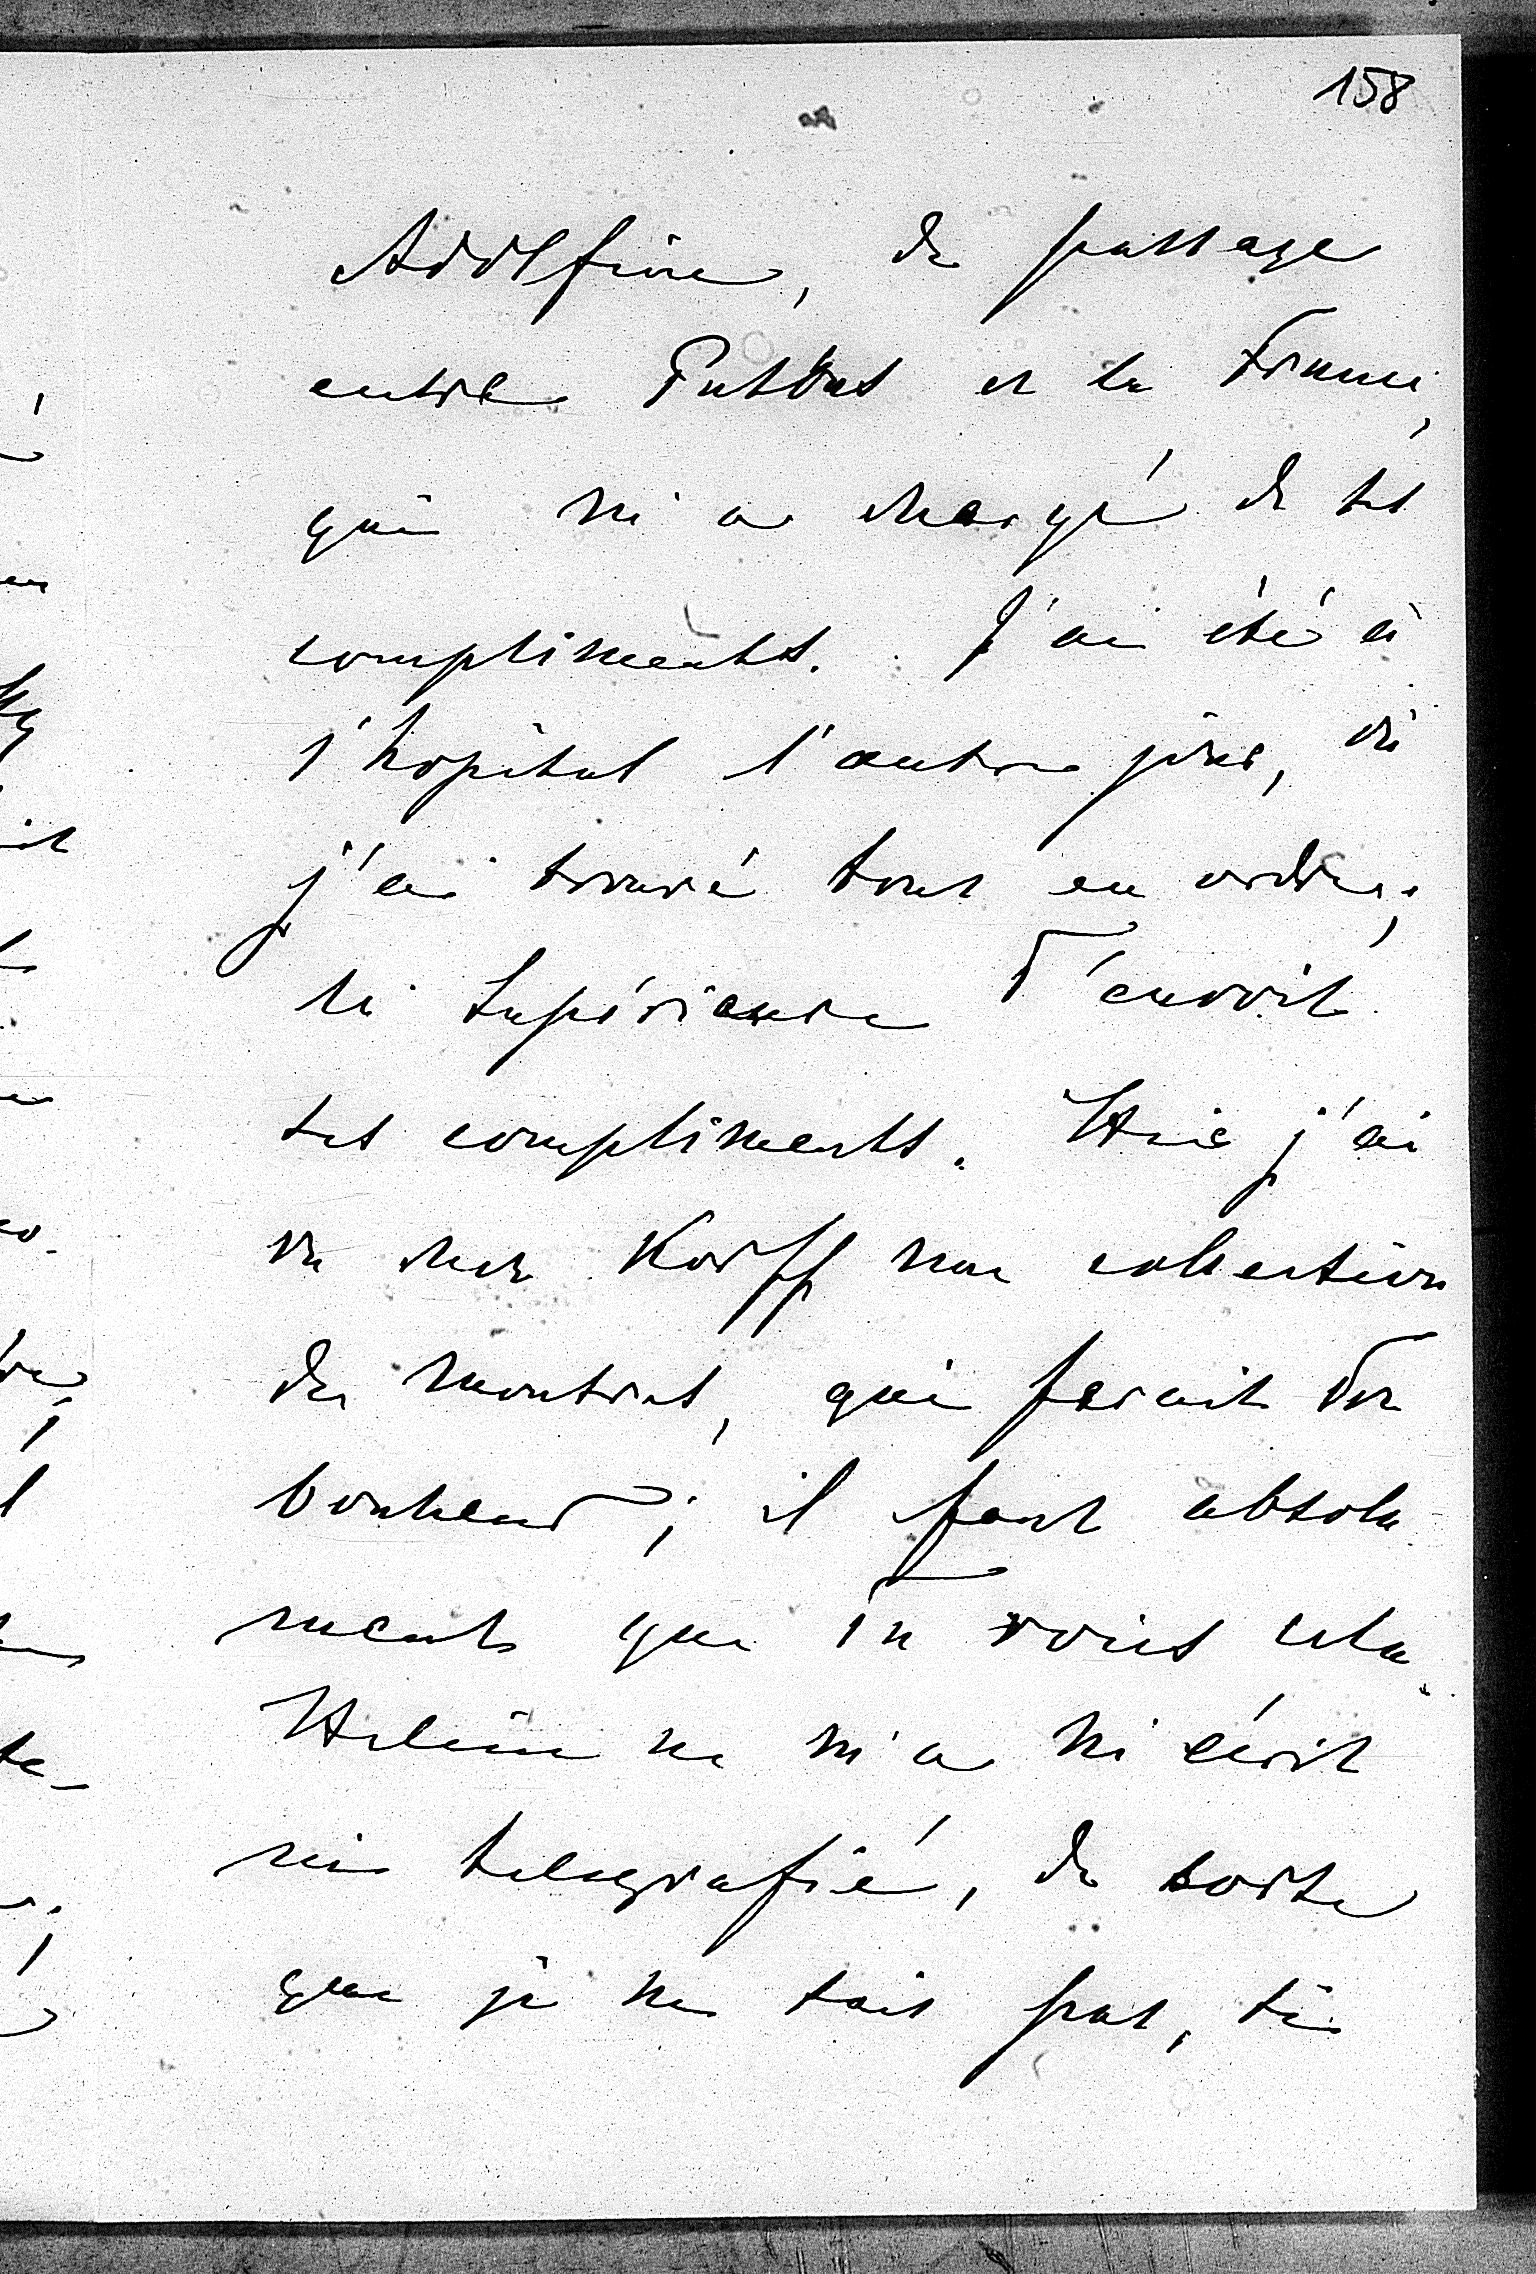 158
Adolfine, de passage
entre Putbus et la France,
qui m'a chargé de ses
compliments. J'ai été à
l'hopital l'autre jour, où
j'ai trouvé tout en ordre;
la Supérieure T'envoit
ses compliments. Hier j'ai
vu chez Korff une collection
de montres, qui ferait Ton
bonheur; il faut absolu
ment que Tu voies cela.
Helène ne m'a ni écrit
ni telegrafié, de sorte
que je ne sais pas, si